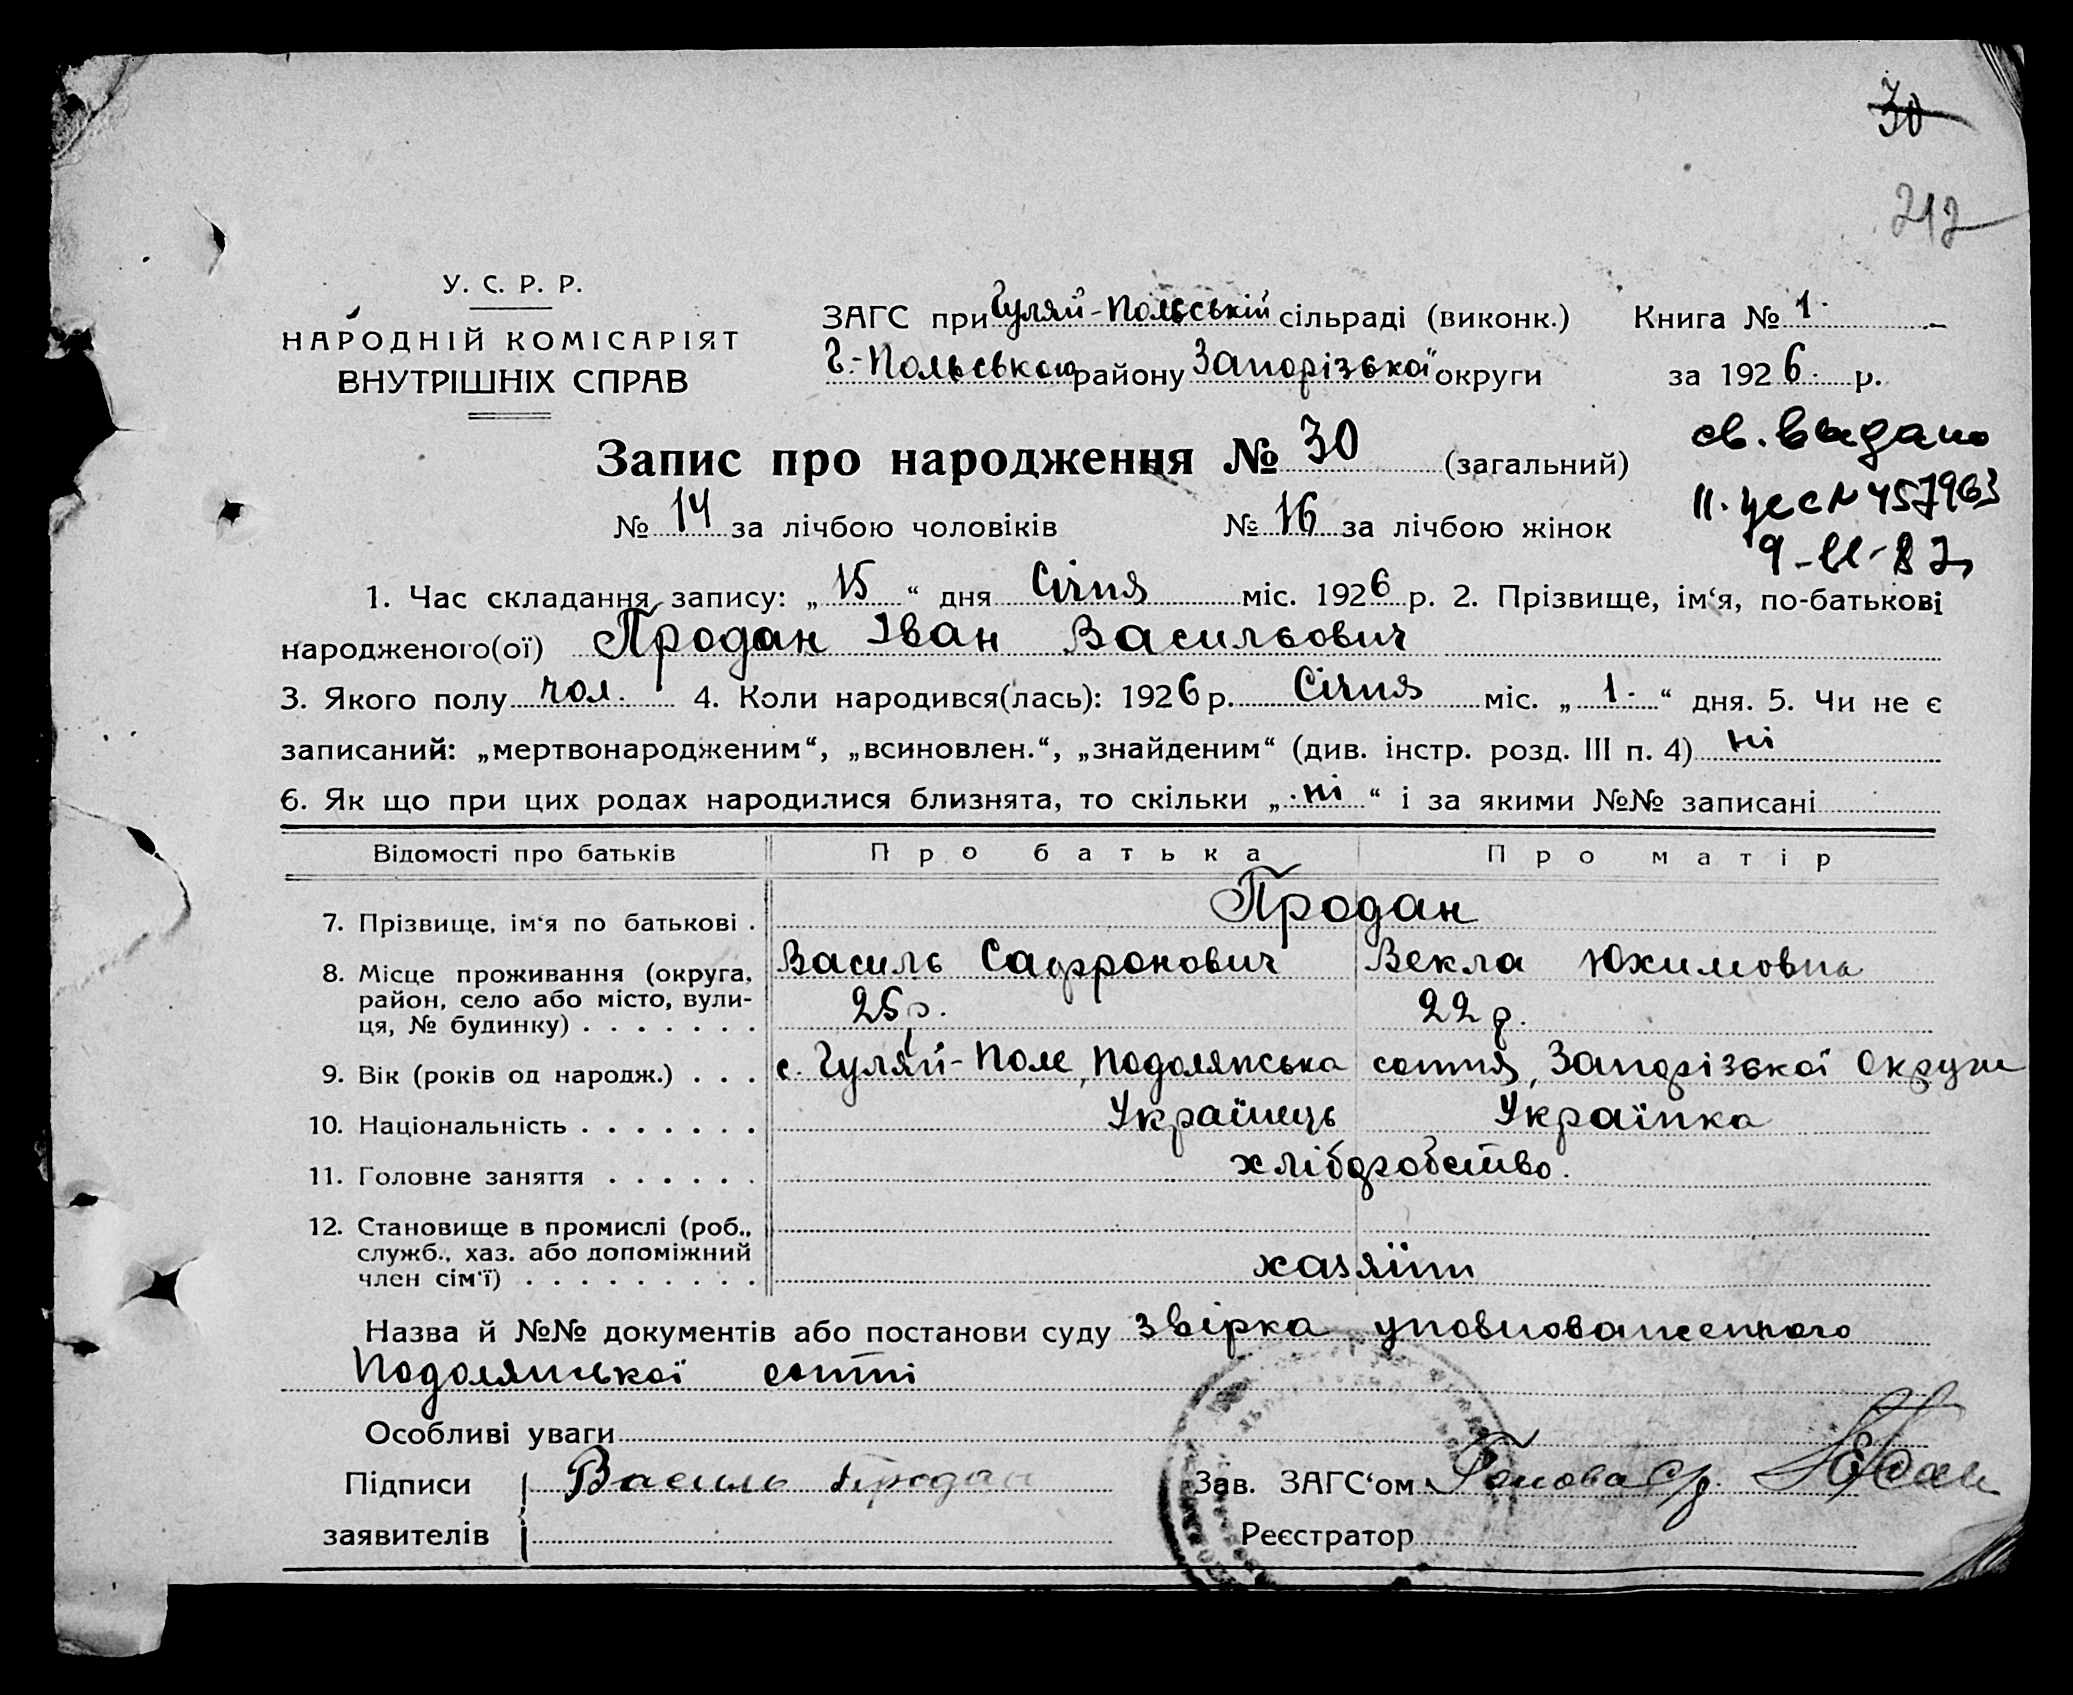 30
212
У. С. Р. Р.
НАРОДНІЙ КОМІСАРІЯТ
ВНУТРІШНІХ СПРАВ
ЗАГС при Гуляй-Польській сільраді (виконк.) Книга № 1.
Г.-Польського району Запорізької округи за 1926. р.
св. выдано
Запис про народження № 30 (загальний)
II. № 457963
№ 14 за лічбою чоловіків № 16 за лічбою жінок
1. Час складання запису: „15“ дня Січня міс. 1926 р. 2. Прізвище, ім‘я, по-батькові
народженого(ої) Продан Іван Васильович
3. Якого полу чол. 4. Коли народився(лась): 1926 р. Січня міс. „1.“ дня. 5. Чи не є
записаний: „мертвонародженим“, „всиновлен.“, „знайденим“ (див. інстр. розд. III п. 4) ні
6. Як що при цих родах народилися близнята, то скільки „ні“ і за якими №№ записані
Відомості про батьків Про батька Про матір
7. Прізвище, ім‘я по батькові . Продан
Василь Сафронович Векла Юхимовна
8. Місце проживання (округа,
район, село або місто, вули-
ця, № будинку) . . . . . . .
25 р. 22 р.
9. Вік (років од народж.) . . . с. Гуляй-Поле, Подолянська сотня, Запорізької Округи
10. Національність . . . . . . . Українець Українка
11. Головне заняття . . . . . . хліборобство.
12. Становище в промислі (роб.,
служб., хаз. або допоміжний
член сім‘ї) . . . . . . . . . хазяїни
Назва й №№ документів або постанови суду звірка уповноваженного
Подолянської сотні
Особливі уваги
Підписи Василь Продан Зав. ЗАГС‘ом Голова с/р.
заявителів Реєстратор